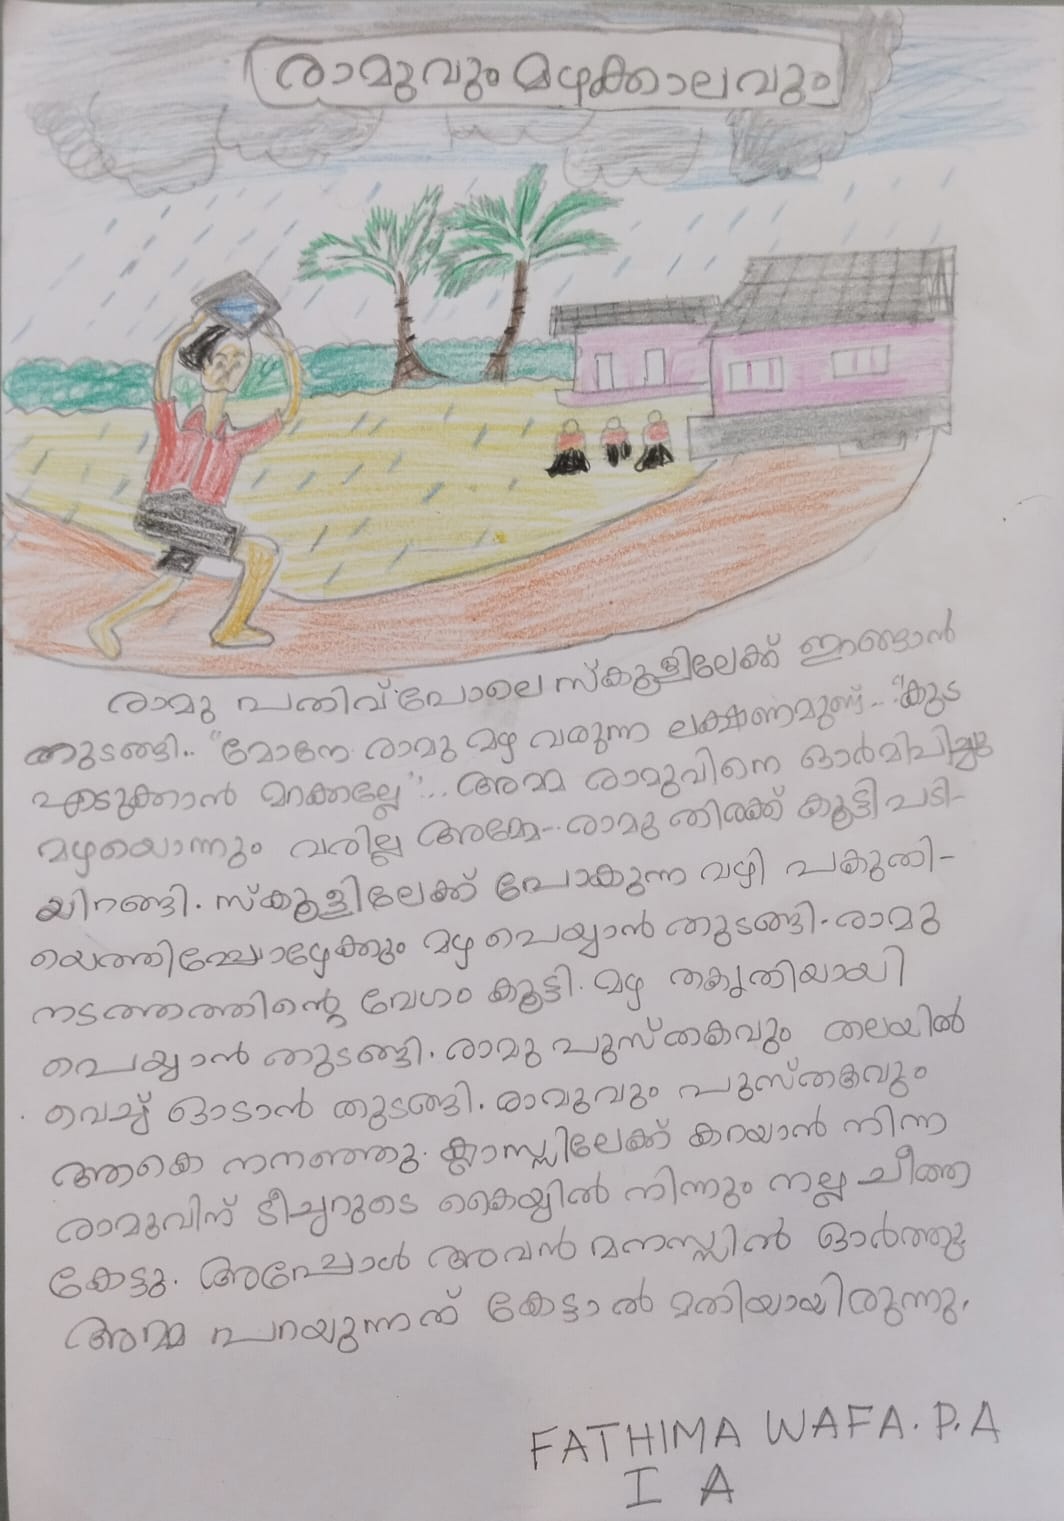 രാമുവും മഴക്കാലവും
രാമു പതിവ്പോലെ സ്കൂളിലേക്ക് ഇറങ്ങാൻ
തുടങ്ങി.. "മോനേ രാമു മഴ വരുന്ന ലക്ഷണമുണ്ട്... "കുട
എടുക്കാൻ മറക്കല്ലേ"... അമ്മ രാമുവിനെ ഓർമിപ്പിച്ചു
മഴയൊന്നും വരില്ല അമ്മേ... രാമു തിരക്ക് കൂട്ടി പടി-
യിറങ്ങി. സ്കൂളിലേക്ക് പോകുന്ന വഴി പകുതി-
യെത്തിയപ്പോഴേക്കും മഴ പെയ്യാൻ തുടങ്ങി. രാമു
നടത്തത്തിന്റെ വേഗം കൂട്ടി. മഴ തകൃതിയായി
പെയ്യാൻ തുടങ്ങി. രാമു പുസ്തകവും തലയിൽ
വെച്ച് ഓടാൻ തുടങ്ങി. രാമുവും പുസ്തകവും
ആകെ നനഞ്ഞു. ക്ലാസ്സിലേക്ക് കറയാൻ നിന്ന
രാമുവിന് ടീച്ചറുടെ കൈയ്യിൽ നിന്നും നല്ല ചീത്ത
കേട്ടു. അപ്പോൾ അവൻ മനസ്സിൽ ഓർത്തു
അമ്മ പറയുന്നത് കേട്ടാൽ മതിയായിരുന്നു.
FATHIMA WAFA. P. A
I A